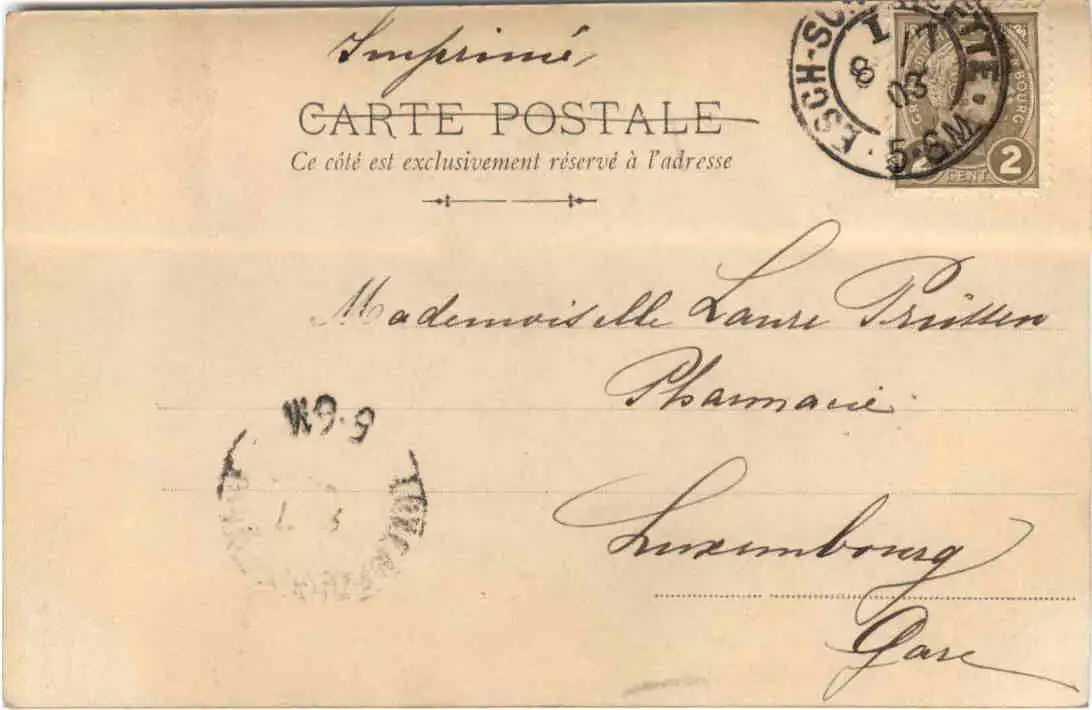 Imprimé
CARTE POSTALE
Ce côté est exclusivement réservé à l'adresse
ESCH-
8 / 7
03
5-6M
BOURG
2 CENT 2
Mademoiselle Laure Prüssen
Pharmacie
Luxembourg
Gare
5-6M